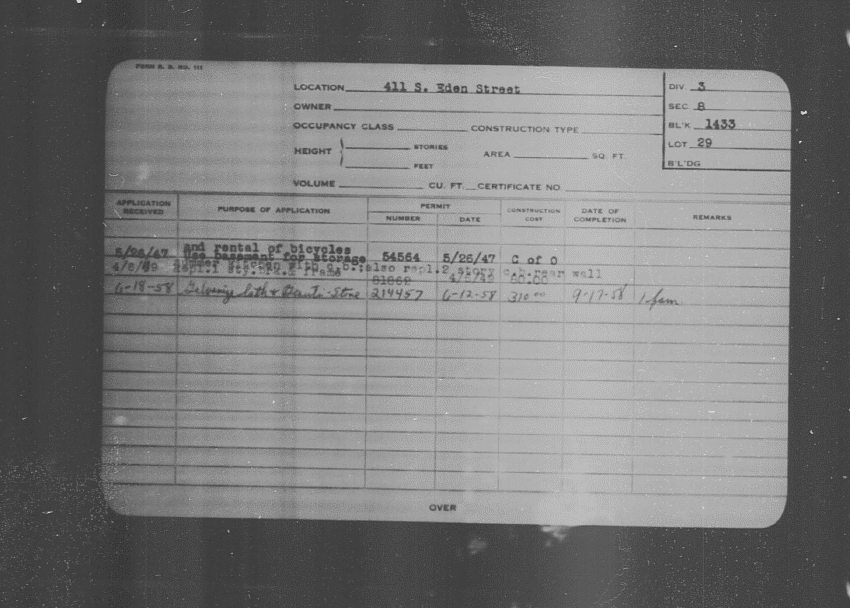 FORM B. B. NO. 111
LOCATION 411 S. Eden Street
OWNER
OCCUPANCY CLASS CONSTRUCTION TYPE
HEIGHT STORIES
FEET
AREA SQ. FT.
VOLUME CU. FT. CERTIFICATE NO.
DIV. 3
SEC 8
BL'K 1433
LOT 29
B'L'DG
APPLICATION RECEIVED PURPOSE OF APPLICATION PERMIT NUMBER DATE CONSTRUCTION COST DATE OF COMPLETION REMARKS
and rental of bicycles
5/26/47 Use basement for storage 54564 5/26/47 C of O
kitchen with c.b.; also repl. 2 story c.b. rear wall
4/6/49 Repl. 1 sty. frame 81869
6-18-58 Galvanize lath & Beauti-Stone 214457 6-12-58 310.00 9-17-58 1 fam
OVER